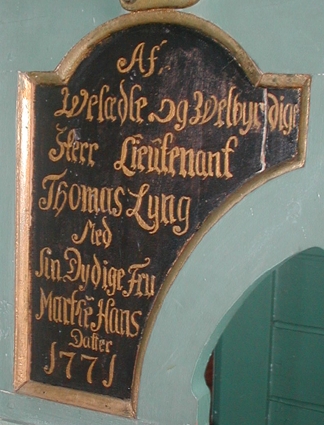 Af
Welædle og Welbyrdige
Herr Lieutenant
Thomas Lyng
Med
sin Dydige Fru
Hans
Datter
1771